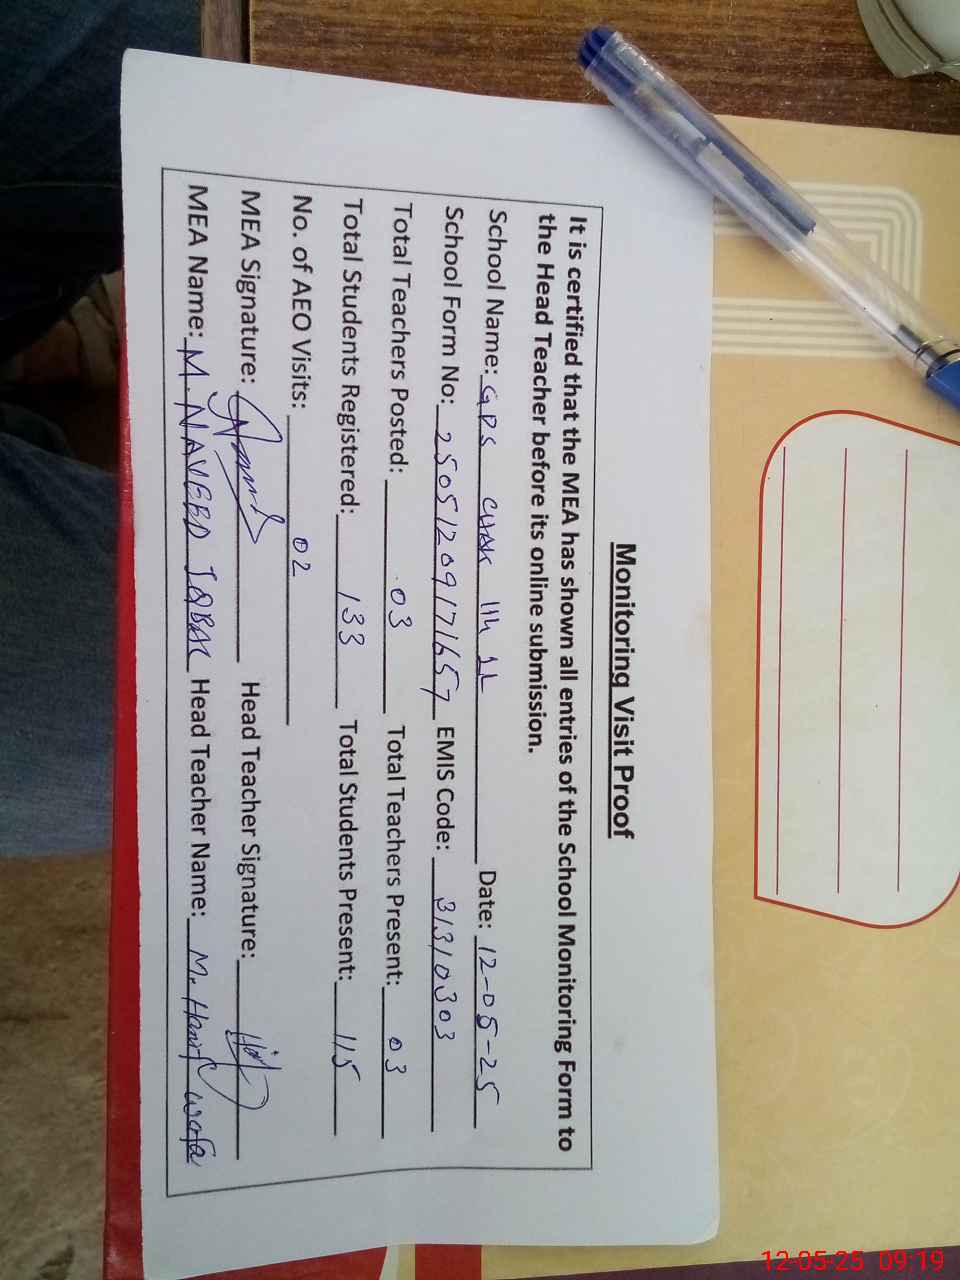 Monitoring Visit Proof
It is certified that the MEA has shown all entries of the School Monitoring Form to
the Head Teacher before its online submission.
School Name: GPS CHAK 114 1L Date: 12-05-25
School Form No: 25051209171657 EMIS Code: 31310303
Total Teachers Posted: 03 Total Teachers Present: 03
Total Students Registered: 133 Total Students Present: 115
No. of AEO Visits: 02
MEA Signature: Head Teacher Signature:
MEA Name: M. NAVEED IQBAL Head Teacher Name: M. Hanif
12-05-25 09:19